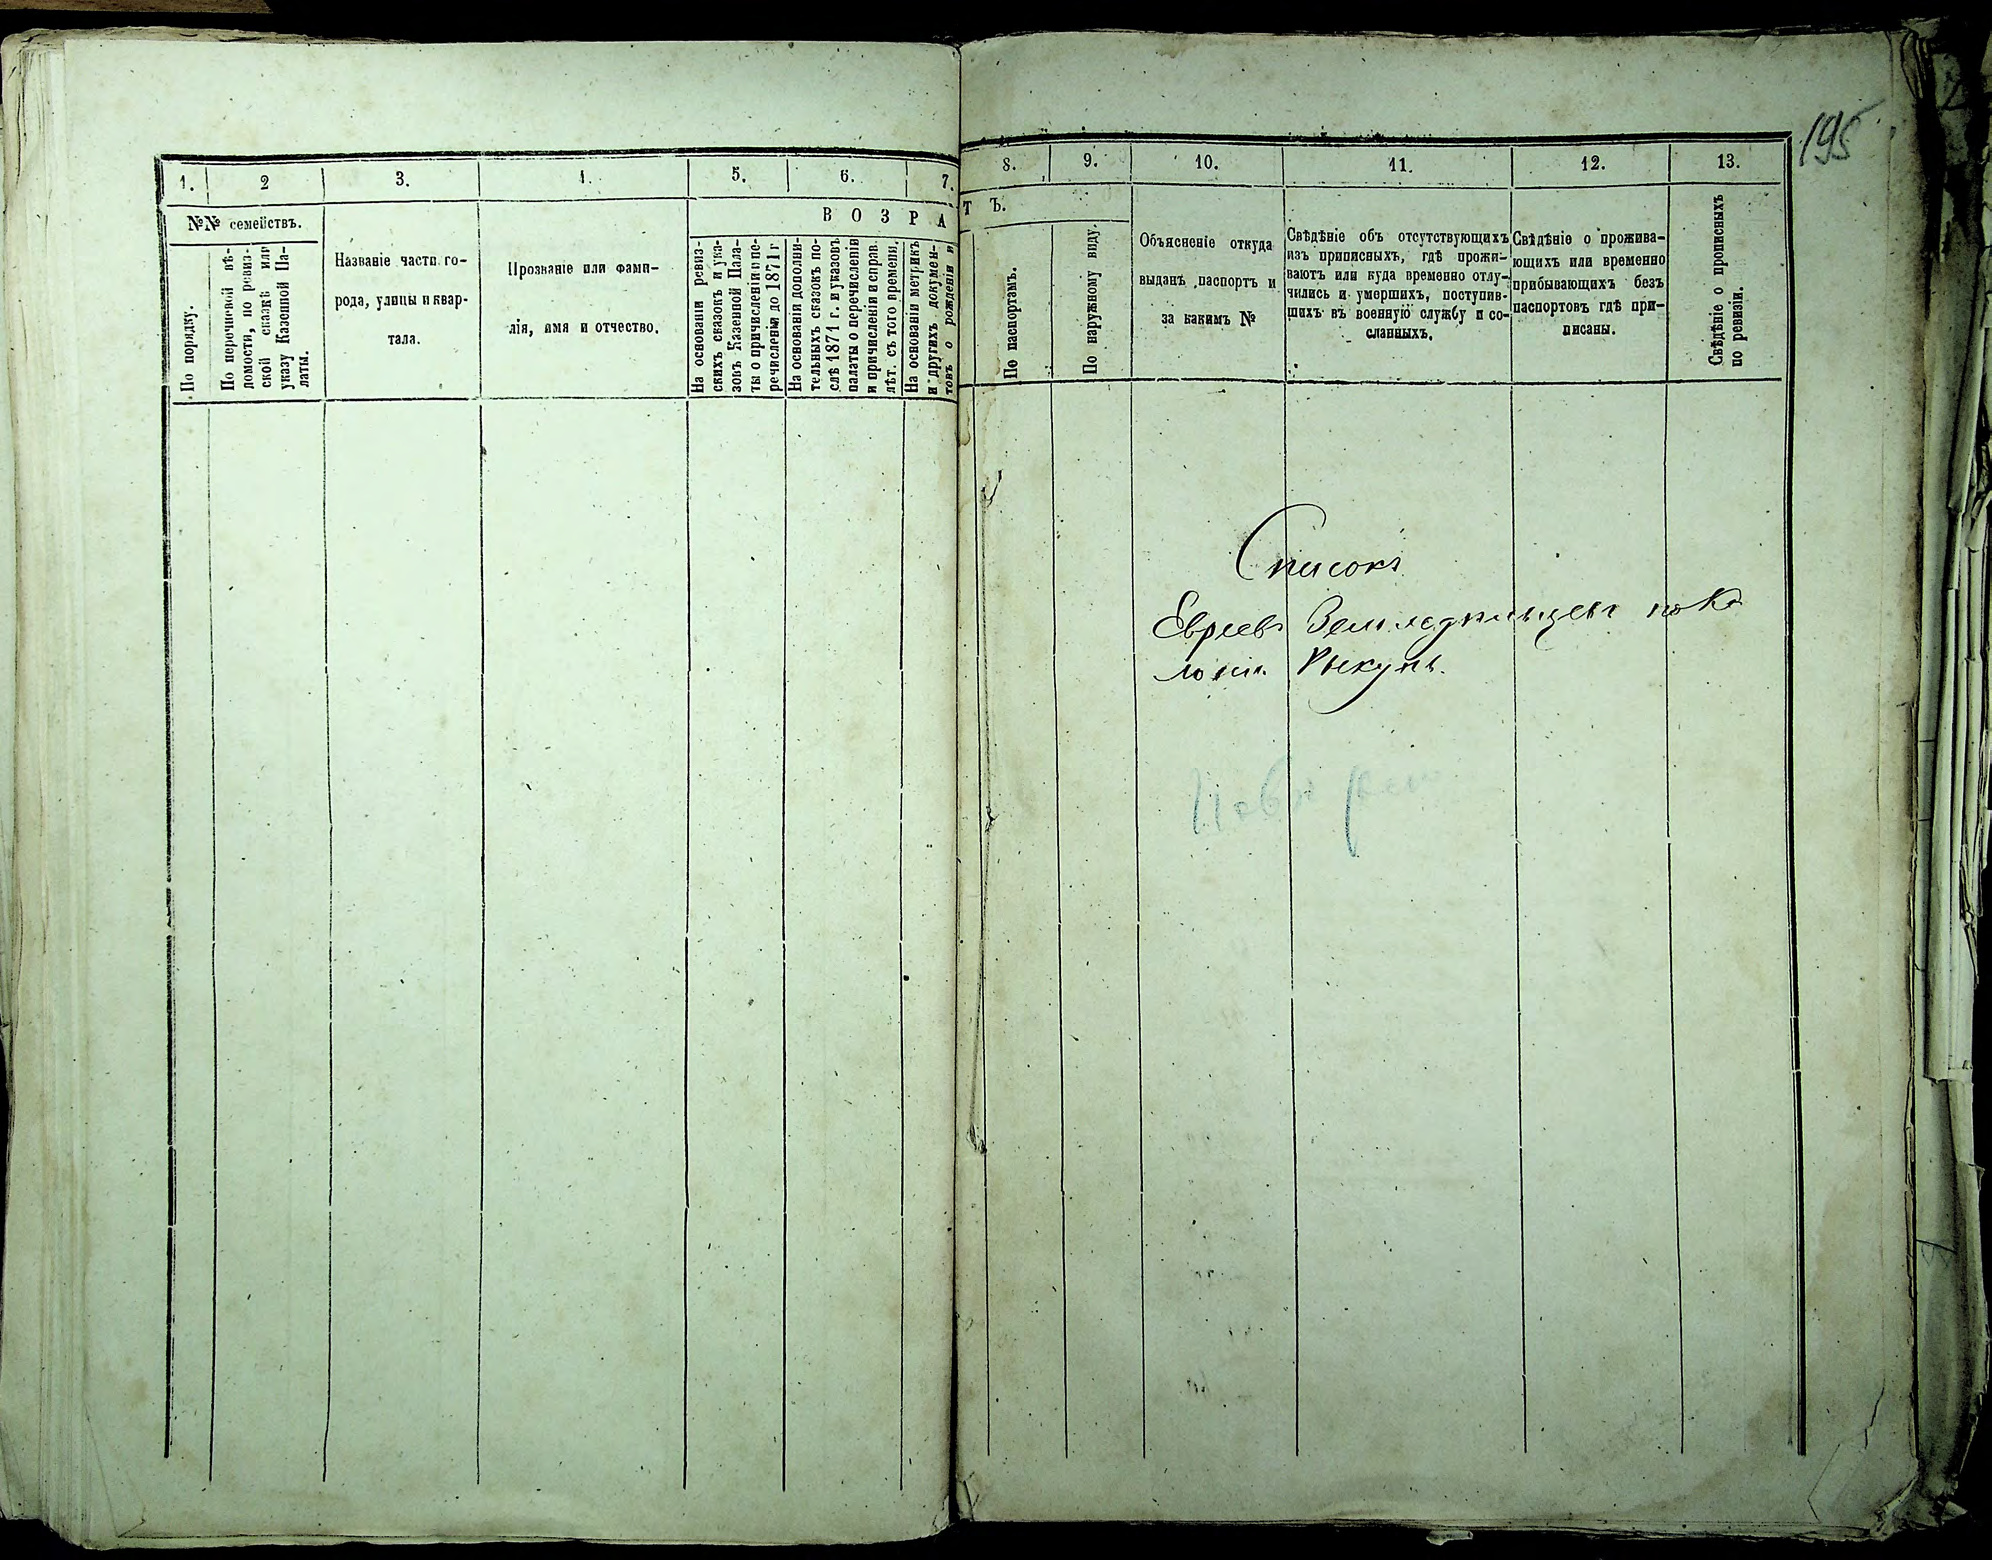 195
1.
2
3.
4.
5.
6.
7.
№№ семействъ.
ВОЗРА
По порядку.
По перечневой вѣ-
домости, по ревиз-
ской сказкѣ или
указу Казенной Па-
латы.
Названіе части го-
рода, улицы и квар-
тала.
Прозваніе или фами-
лія, имя и отчество.
На основаніи ревиз-
скихъ сказокъ и ука-
зовъ Казенной Пала-
ты о причисленіи и пе-
речисленіи до 1871 г
На основаніи дополни-
тельныхъ сказокъ по-
слѣ 1871 г. и указовъ
палаты о перечисленіи
и причисленіи и исправ.
лѣт. съ того времени.
На основаніи метрикъ
и другихъ докумен-
товъ о рожденіи и
8.
9.
10.
11.
12.
13.
ТЪ.
По паспортамъ.
По наружному виду.
Объясненіе откуда
выданъ паспортъ и
за какимъ №
Свѣдѣніе объ отсутствующихъ
изъ приписныхъ, гдѣ прожи-
ваютъ или куда временно отлу-
чились и умершихъ, поступив-
шихъ въ военную службу и со-
сланныхъ.
Свѣдѣніе о прожива-
ющихъ или временно
прибывающихъ безъ
паспортовъ гдѣ при-
писаны.
Свѣдѣніе о прописныхъ
по ревизіи.
Списокъ
Евреевъ Земледѣльцевъ по Ко
лоніи Рыкунь.